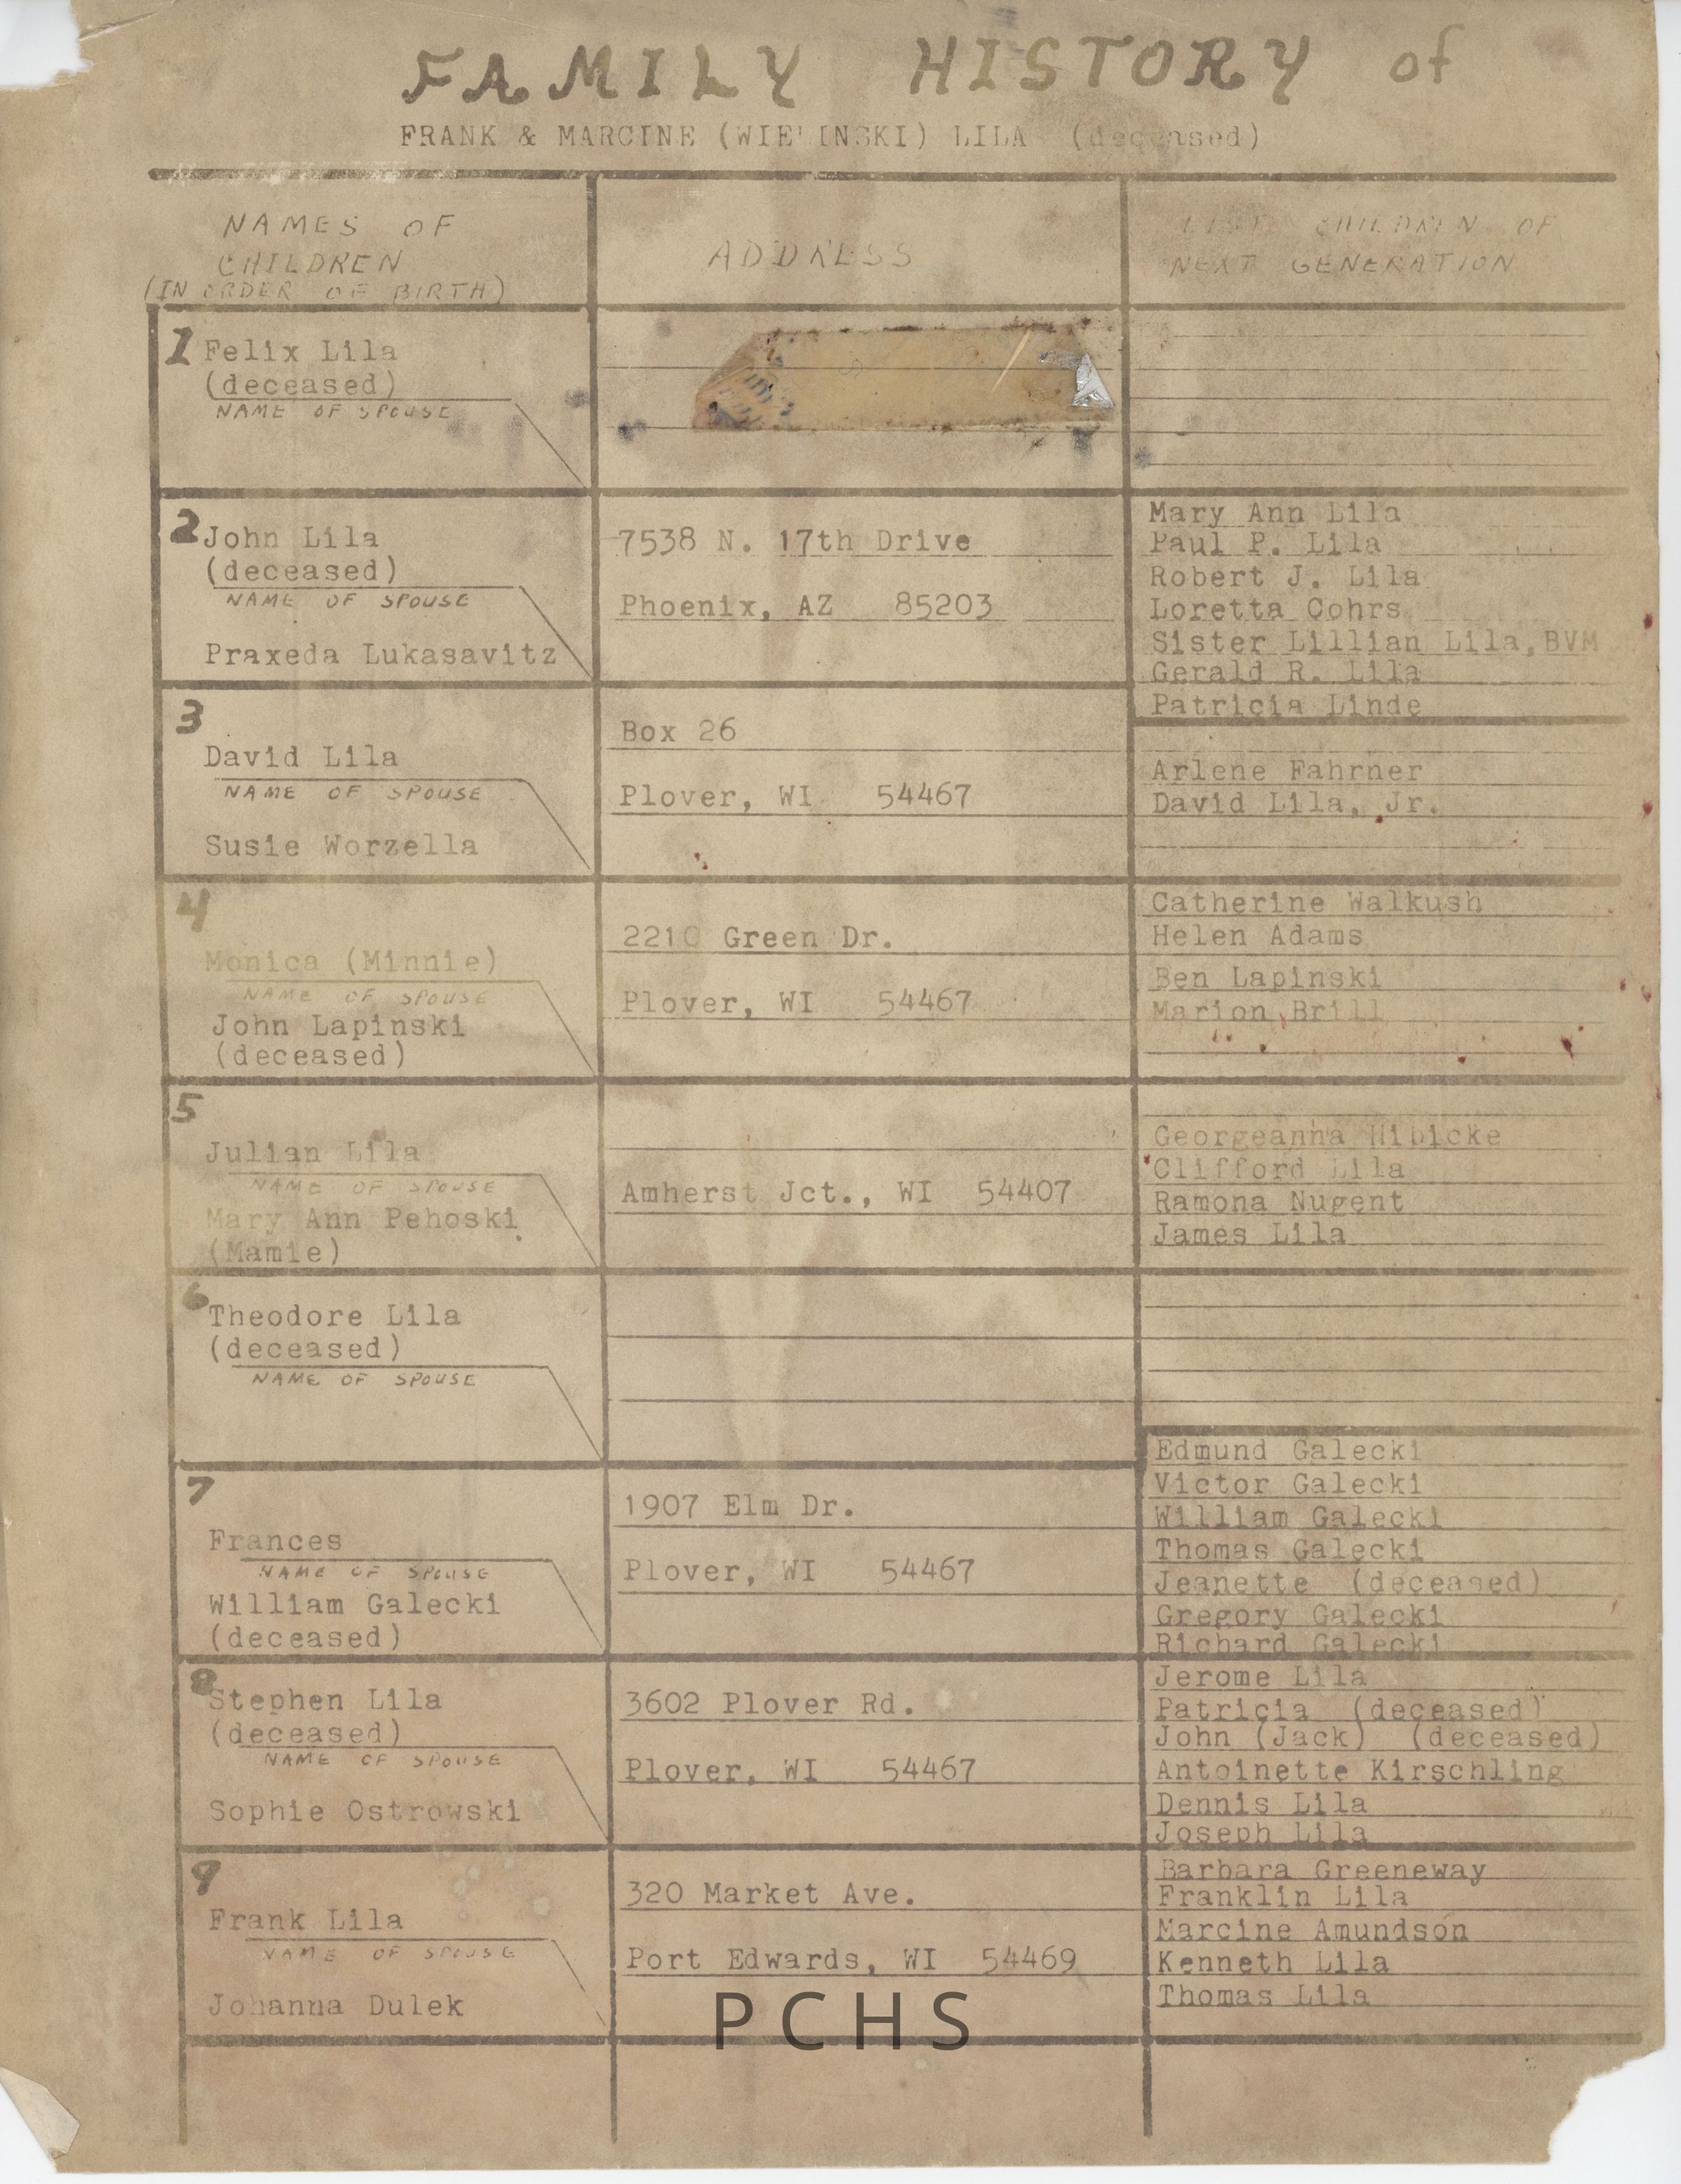 FAMILY HISTORY of
FRANK & MARCINE (WIELINSKI) LILA (deceased)
NAMES OF
CHILDREN
(IN ORDER OF BIRTH)
ADDRESS
LIST CHILDREN OF
NEXT GENERATION
1 Felix Lila
(deceased)
NAME OF SPOUSE
2 John Lila
(deceased)
NAME OF SPOUSE
Praxeda Lukasavitz
7538 N. 17th Drive
Phoenix, AZ 85203
Mary Ann Lila
Paul P. Lila
Robert J. Lila
Loretta Cohrs
Sister Lillian Lila, BVM
Gerald R. Lila
Patricia Linde
3
David Lila
NAME OF SPOUSE
Susie Worzella
Box 26
Plover, WI 54467
Arlene Fahrner
David Lila, Jr.
4
Monica (Minnie)
NAME OF SPOUSE
John Lapinski
(deceased)
2210 Green Dr.
Plover, WI 54467
Catherine Walkush
Helen Adams
Ben Lapinski
Marion Brill
5
Julian Lila
NAME OF SPOUSE
Mary Ann Pehoski
(Mamie)
Amherst Jct., WI 54407
Georgeanna Hibicke
Clifford Lila
Ramona Nugent
James Lila
6
Theodore Lila
(deceased)
NAME OF SPOUSE
7
Frances
NAME OF SPOUSE
William Galecki
(deceased)
1907 Elm Dr.
Plover, WI 54467
Edmund Galecki
Victor Galecki
William Galecki
Thomas Galecki
Jeanette (deceased)
Gregory Galecki
Richard Galecki
8
Stephen Lila
(deceased)
NAME OF SPOUSE
Sophie Ostrowski
3602 Plover Rd.
Plover, WI 54467
Jerome Lila
Patricia (deceased)
John (Jack) (deceased)
Antoinette Kirschling
Dennis Lila
Joseph Lila
9
Frank Lila
NAME OF SPOUSE
Johanna Dulek
320 Market Ave.
Port Edwards, WI 54469
Barbara Greeneway
Franklin Lila
Marcine Amundson
Kenneth Lila
Thomas Lila
PCHS